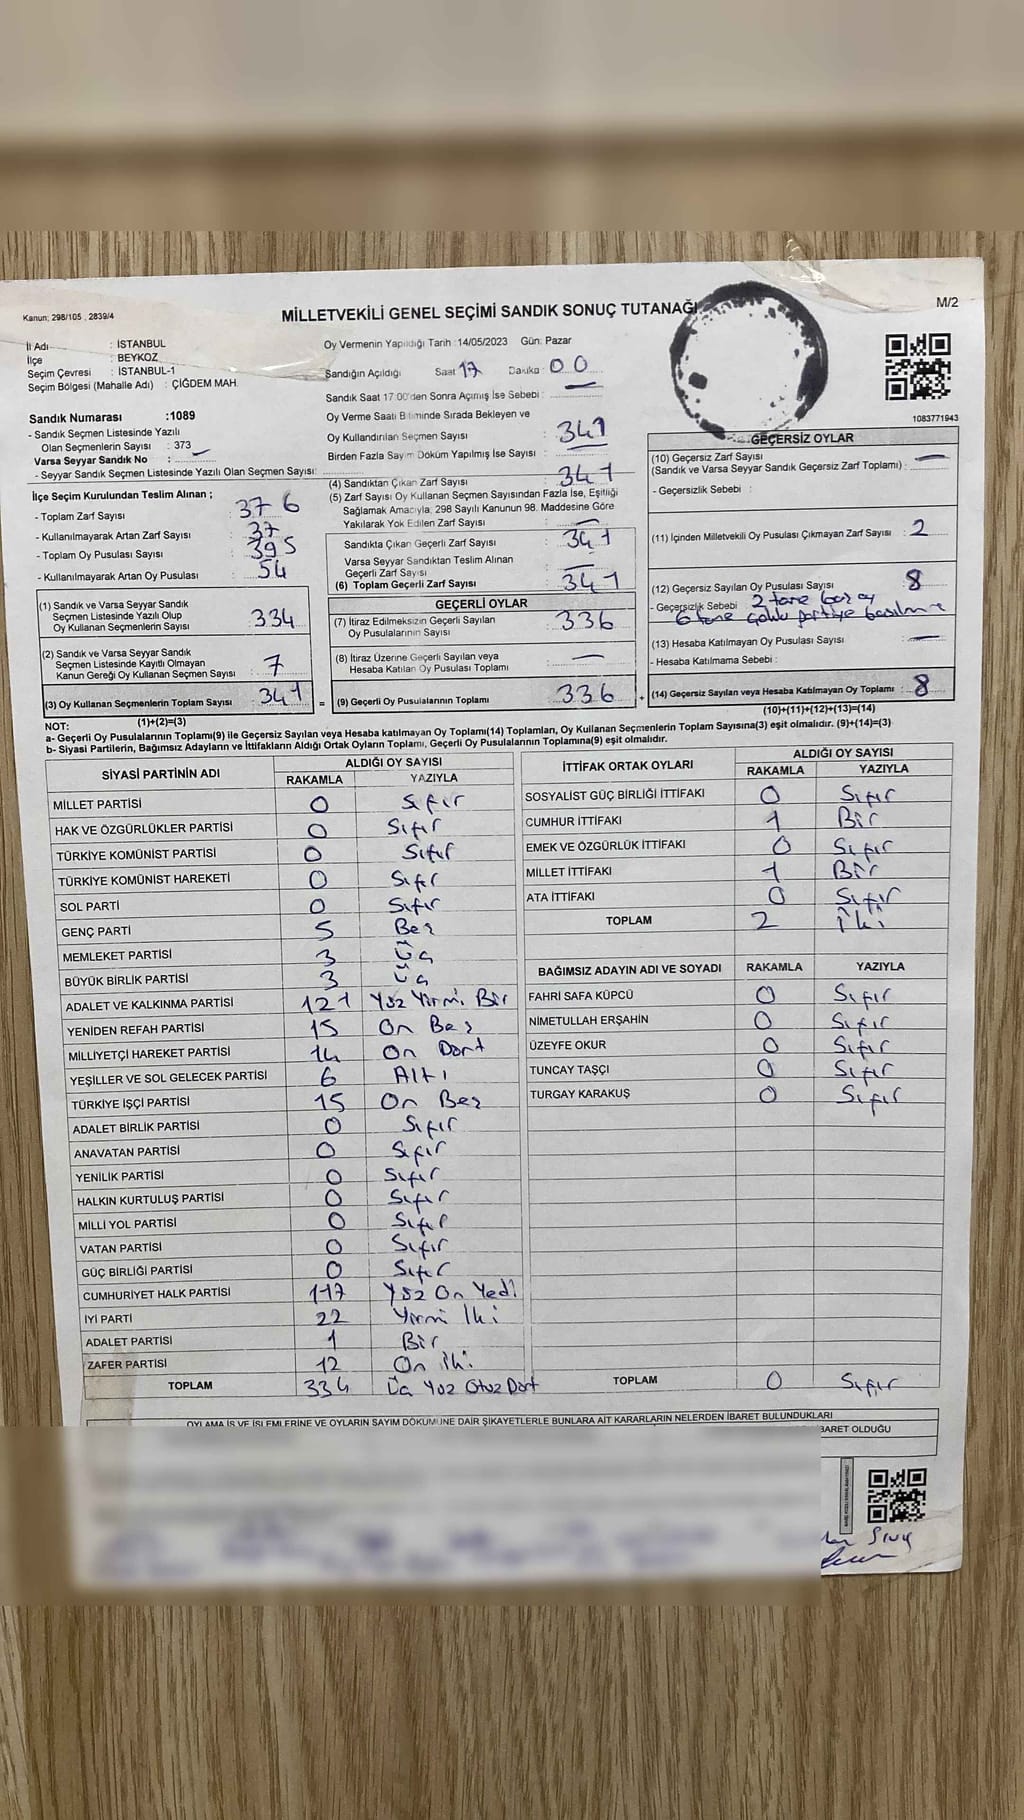 Kanun; 298/105 , 2839/4
MİLLETVEKİLİ GENEL SEÇİMİ SANDIK SONUÇ TUTANAĞI
M/2
İl Adı : İSTANBUL
İlçe : BEYKOZ
Seçim Çevresi : İSTANBUL-1
Seçim Bölgesi (Mahalle Adı) : ÇİĞDEM MAH.
Sandık Numarası :1089
- Sandık Seçmen Listesinde Yazılı
Olan Seçmenlerin Sayısı : 373
Varsa Seyyar Sandık No :
- Seyyar Sandık Seçmen Listesinde Yazılı Olan Seçmen Sayısı:
Oy Vermenin Yapıldığı Tarih :14/05/2023 Gün: Pazar
Sandığın Açıldığı Saat 17 Dakika : 00
Sandık Saat 17:00'den Sonra Açımış İse Sebebi :
Oy Verme Saati Bitiminde Sırada Bekleyen ve
Oy Kullandırılan Seçmen Sayısı : 341
Birden Fazla Sayım Döküm Yapılmış İse Sayısı :
1083771943
İlçe Seçim Kurulundan Teslim Alınan ;
- Toplam Zarf Sayısı : 376
- Kullanılmayarak Artan Zarf Sayısı : 37
- Toplam Oy Pusulası Sayısı : 395
- Kullanılmayarak Artan Oy Pusulası : 54
(1) Sandık ve Varsa Seyyar Sandık
Seçmen Listesinde Yazılı Olup
Oy Kullanan Seçmenlerin Sayısı : 334
(2) Sandık ve Varsa Seyyar Sandık
Seçmen Listesinde Kayıtlı Olmayan
Kanun Gereği Oy Kullanan Seçmen Sayısı : 7
(3) Oy Kullanan Seçmenlerin Toplam Sayısı : 341
(1)+(2)=(3)
(4) Sandıktan Çıkan Zarf Sayısı : 341
(5) Zarf Sayısı Oy Kullanan Seçmen Sayısından Fazla İse, Eşitliği
Sağlamak Amacıyla; 298 Sayılı Kanunun 98. Maddesine Göre
Yakılarak Yok Edilen Zarf Sayısı :
Sandıkta Çıkan Geçerli Zarf Sayısı : 341
Varsa Seyyar Sandıktan Teslim Alınan
Geçerli Zarf Sayısı :
(6) Toplam Geçerli Zarf Sayısı : 341
GEÇERLİ OYLAR
(7) İtiraz Edilmeksizin Geçerli Sayılan
Oy Pusulalarının Sayısı : 336
(8) İtiraz Üzerine Geçerli Sayılan veya
Hesaba Katılan Oy Pusulası Toplamı :
= (9) Geçerli Oy Pusulalarının Toplamı : 336 +
GEÇERSİZ OYLAR
(10) Geçersiz Zarf Sayısı
(Sandık ve Varsa Seyyar Sandık Geçersiz Zarf Toplamı) :
- Geçersizlik Sebebi :
(11) İçinden Milletvekili Oy Pusulası Çıkmayan Zarf Sayısı : 2
(12) Geçersiz Sayılan Oy Pusulası Sayısı : 8
- Geçersizlik Sebebi 2 tane boş oy
6 tane çoklu partiye basılmış
(13) Hesaba Katılmayan Oy Pusulası Sayısı :
- Hesaba Katılmama Sebebi :
(14) Geçersiz Sayılan veya Hesaba Katılmayan Oy Toplamı : 8
(10)+(11)+(12)+(13)=(14)
NOT:
a- Geçerli Oy Pusulalarının Toplamı(9) ile Geçersiz Sayılan veya Hesaba katılmayan Oy Toplamı(14) Toplamları, Oy Kullanan Seçmenlerin Toplam Sayısına(3) eşit olmalıdır. (9)+(14)=(3)
b- Siyasi Partilerin, Bağımsız Adayların ve İttifakların Aldığı Ortak Oyların Toplamı, Geçerli Oy Pusulalarının Toplamına(9) eşit olmalıdır.
SİYASİ PARTİNİN ADI ALDIĞI OY SAYISI
RAKAMLA YAZIYLA
MİLLET PARTİSİ 0 Sıfır
HAK VE ÖZGÜRLÜKLER PARTİSİ 0 Sıfır
TÜRKİYE KOMÜNİST PARTİSİ 0 Sıfır
TÜRKİYE KOMÜNİST HAREKETİ 0 Sıfır
SOL PARTİ 0 Sıfır
GENÇ PARTİ 5 Beş
MEMLEKET PARTİSİ 3 Üç
BÜYÜK BİRLİK PARTİSİ 3 Üç
ADALET VE KALKINMA PARTİSİ 121 Yüz Yirmi Bir
YENİDEN REFAH PARTİSİ 15 On Beş
MİLLİYETÇİ HAREKET PARTİSİ 14 On Dört
YEŞİLLER VE SOL GELECEK PARTİSİ 6 Altı
TÜRKİYE İŞÇİ PARTİSİ 15 On Beş
ADALET BİRLİK PARTİSİ 0 Sıfır
ANAVATAN PARTİSİ 0 Sıfır
YENİLİK PARTİSİ 0 Sıfır
HALKIN KURTULUŞ PARTİSİ 0 Sıfır
MİLLİ YOL PARTİSİ 0 Sıfır
VATAN PARTİSİ 0 Sıfır
GÜÇ BİRLİĞİ PARTİSİ 0 Sıfır
CUMHURİYET HALK PARTİSİ 117 Yüz On Yedi
İYİ PARTİ 22 Yirmi İki
ADALET PARTİSİ 1 Bir
ZAFER PARTİSİ 12 On İki
TOPLAM 334 Üç Yüz Otuz Dört
İTTİFAK ORTAK OYLARI ALDIĞI OY SAYISI
RAKAMLA YAZIYLA
SOSYALİST GÜÇ BİRLİĞİ İTTİFAKI 0 Sıfır
CUMHUR İTTİFAKI 1 Bir
EMEK VE ÖZGÜRLÜK İTTİFAKI 0 Sıfır
MİLLET İTTİFAKI 1 Bir
ATA İTTİFAKI 0 Sıfır
TOPLAM 2 İki
BAĞIMSIZ ADAYIN ADI VE SOYADI RAKAMLA YAZIYLA
FAHRİ SAFA KÜPCÜ 0 Sıfır
NİMETULLAH ERŞAHİN 0 Sıfır
ÜZEYFE OKUR 0 Sıfır
TUNCAY TAŞÇI 0 Sıfır
TURGAY KARAKUŞ 0 Sıfır
TOPLAM 0 Sıfır
OYLAMA İŞ VE İŞLEMLERİNE VE OYLARIN SAYIM DÖKÜMÜNE DAİR ŞİKAYETLERLE BUNLARA AİT KARARLARIN NELERDEN İBARET BULUNDUKLARI
İBARET OLDUĞU